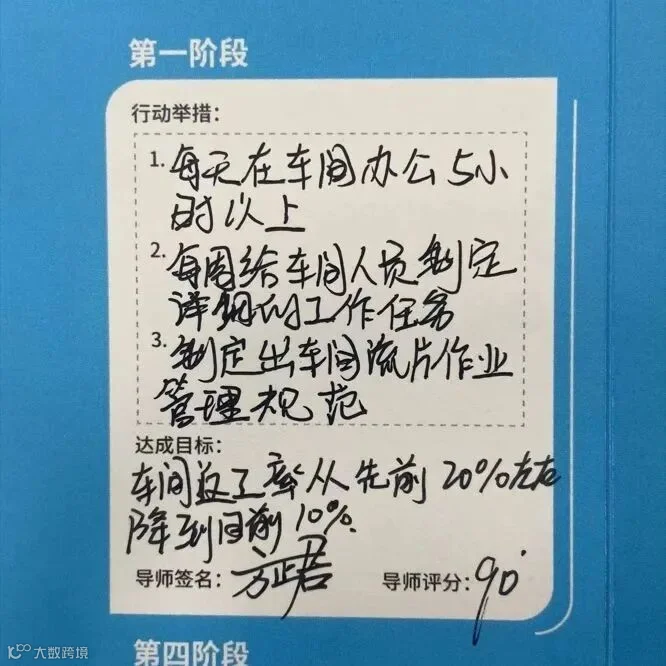 第一阶段
行动举措:
1. 每天在车间办公5小
时以上
2. 每周给车间人员制定
详细的工作任务
3. 制定出车间流片作业
管理规范
达成目标:
车间返工率从先前20%左右
降到目前10%.
导师签名:
导师评分: 90
第四阶段
大数跨境